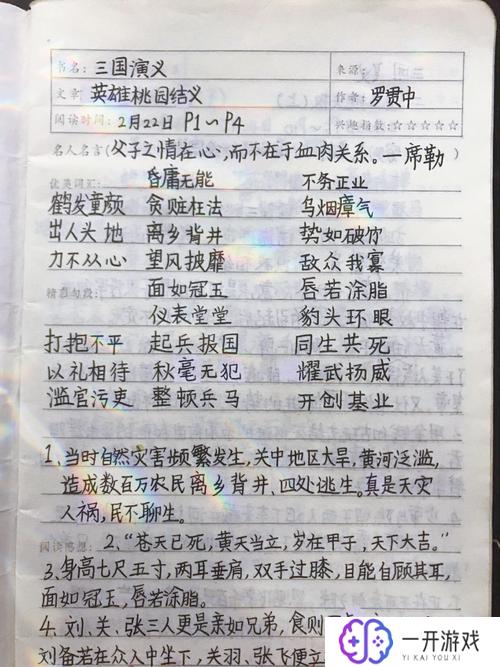 书名：三国演义 来源：
文章 英雄桃园结义 作者：罗贯中
阅读时间：2月22日 P1～P4 兴趣指数：☆☆☆☆☆
名人名言（父子之情在心，而不在于血肉关系。—席勒）
优美词汇： 昏庸无能 不务正业
鹤发童颜 贪赃枉法 乌烟瘴气
出人头地 离乡背井 势如破竹
力不从心 望风披靡 敌众我寡
精彩句段： 面如冠玉 唇若涂脂
仪表堂堂 豹头环眼
打抱不平 起兵报国 同生共死
以礼相待 秋毫无犯 耀武扬威
滥官污吏 整顿兵马 开创基业
1、当时自然灾害频繁发生，关中地区大旱，黄河泛滥，
造成数百万农民离乡背井、四处逃生。真是天灾
人祸，民不聊生。
阅读感想： 2、“苍天已死，黄天当立，岁在甲子，天下大吉。”
3、身高七尺五寸，两耳垂肩，双手过膝，目能自顾其耳，
面如冠玉，唇若涂脂。
4、刘、关、张三人更是亲如兄弟，食则
刘备若在众人中坐下，关羽、张飞便立
一开游戏
YI KAI YOU XI